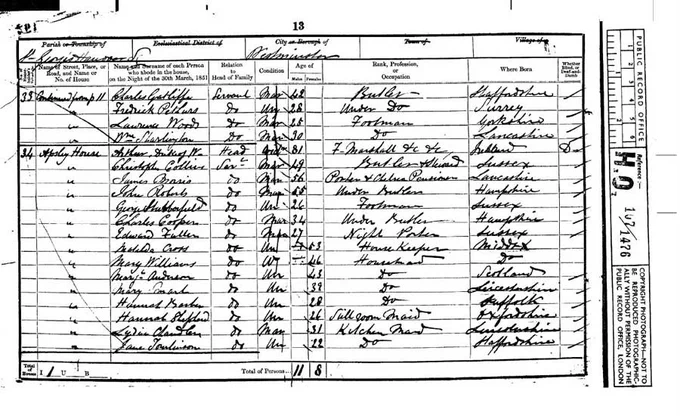 13
Parish or Township of Ecclesiastical District of City or Borough of Town of Village of
St George's Hanover Sq Westminster
Name of Street, Place, or Road, and Name or No. of House
Name and Surname of each Person who abode in the house, on the Night of the 30th March, 1851
Relation to Head of Family
Condition
Age of Males Females
Rank, Profession, or Occupation
Where Born
Whether Blind, or Deaf-and-Dumb
33 Continued from p 11 Charles Servant Mar 42 Butler Staffordshire
" Do 28 Under Do Surrey
" Lawrence Woods Do Mar 25 Footman Yorkshire
" Wm Do 30 Do Lancashire
34 Apsley House Arthur, Head 81 F. Marshall &c &c Ireland
" Christopher Collins Serv. 49 Butler Sussex
" James Do 56 Porter & Chelsea Pensioner Lancashire
" John Roberts Do 55 Under Butler Hampshire
" Do Un 26 Footman Sussex
" Charles Cooper Do Mar 34 Under Butler Hampshire
" Edward Fuller Do 27 Night Porter Sussex
" Matilda Cross Do Un 53 House Keeper Middx
" Mary Williams Do 46 Housemaid Do
" Anderson Do Un 43 Do Scotland
" Mary Do Un 39 Do Leicestershire
" Hannah Do Un 28 Do Suffolk
" Hannah Do Un 26 Still room Maid Oxfordshire
" Lydia Do 31 Kitchen Maid Lincolnshire
" Jane Tomlinson Do Un 22 Do Staffordshire
Total of Houses I 1 U B Total of Persons 11 8
PUBLIC RECORD OFFICE
Reference:-
HO 107/1476
COPYRIGHT PHOTOGRAPH—NOT TO BE REPRODUCED PHOTOGRAPHICALLY WITHOUT PERMISSION OF THE PUBLIC RECORD OFFICE, LONDON